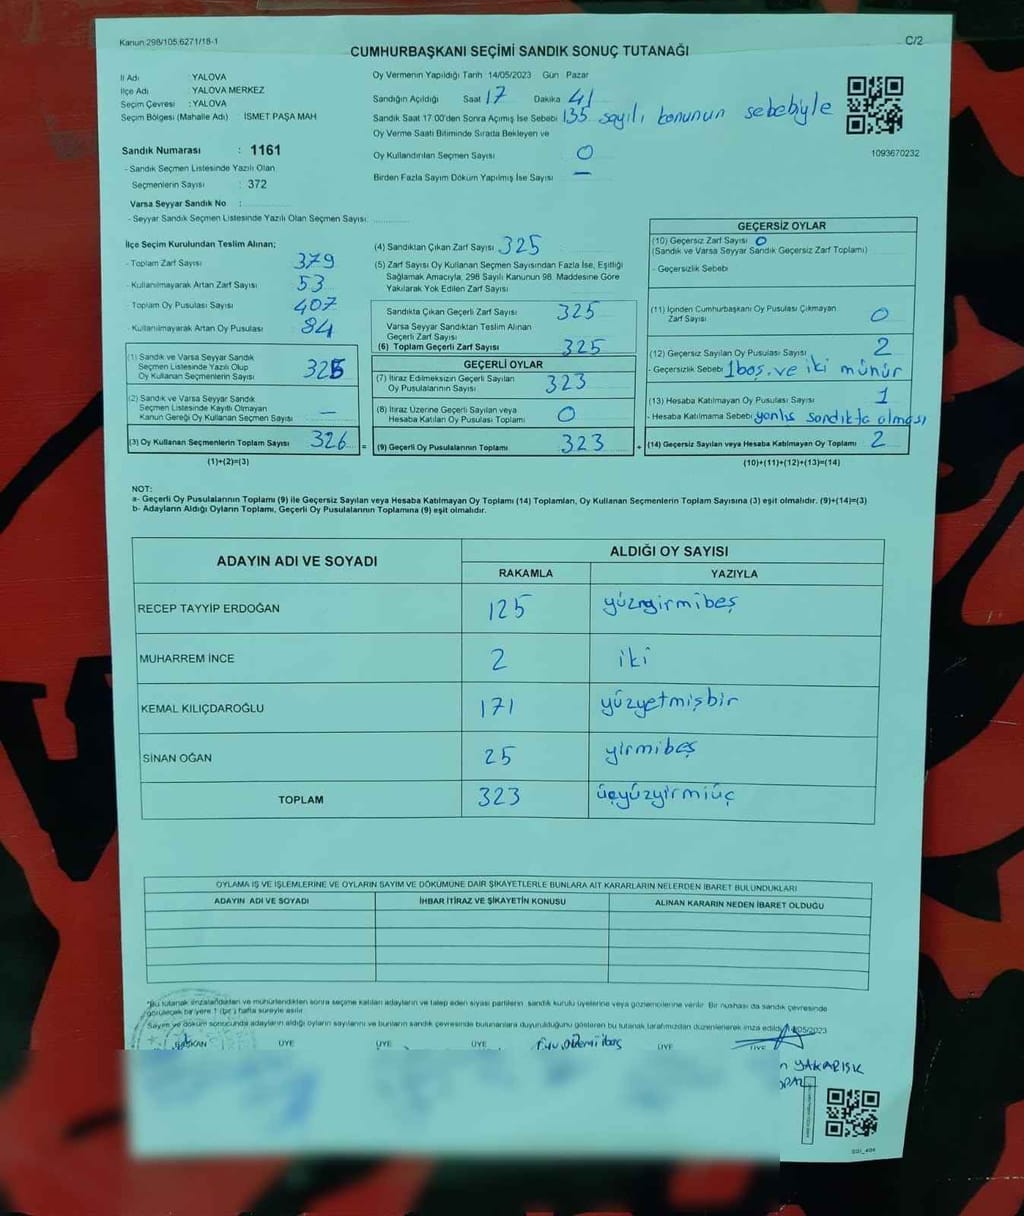 Kanun 298/105.6271/18-1
C/2
CUMHURBAŞKANI SEÇİMİ SANDIK SONUÇ TUTANAĞI
İl Adı : YALOVA
İlçe Adı : YALOVA MERKEZ
Seçim Çevresi : YALOVA
Seçim Bölgesi (Mahalle Adı) İSMET PAŞA MAH
Sandık Numarası : 1161
- Sandık Seçmen Listesinde Yazılı Olan
Seçmenlerin Sayısı : 372
Varsa Seyyar Sandık No :
- Seyyar Sandık Seçmen Listesinde Yazılı Olan Seçmen Sayısı:
Oy Vermenin Yapıldığı Tarih 14/05/2023 Gün Pazar
Sandığın Açıldığı Saat 17 Dakika 41
Sandık Saat 17.00'den Sonra Açımış İse Sebebi 135 sayılı konunun sebebiyle
Oy Verme Saati Bitiminde Sırada Bekleyen ve
Oy Kullandırılan Seçmen Sayısı 0
Birden Fazla Sayım Döküm Yapılmış İse Sayısı —
1093670232
İlçe Seçim Kurulundan Teslim Alınan;
- Toplam Zarf Sayısı 379
- Kullanılmayarak Artan Zarf Sayısı 53
- Toplam Oy Pusulası Sayısı 407
- Kullanılmayarak Artan Oy Pusulası 84
(1) Sandık ve Varsa Seyyar Sandık
Seçmen Listesinde Yazılı Olup
Oy Kullanan Seçmenlerin Sayısı
(2) Sandık ve Varsa Seyyar Sandık
Seçmen Listesinde Kayıtlı Olmayan
Kanun Gereği Oy Kullanan Seçmen Sayısı —
(3) Oy Kullanan Seçmenlerin Toplam Sayısı 326 =
(1)+(2)=(3)
(4) Sandıktan Çıkan Zarf Sayısı 325
(5) Zarf Sayısı Oy Kullanan Seçmen Sayısından Fazla İse, Eşitliği
Sağlamak Amacıyla, 298 Sayılı Kanunun 98. Maddesine Göre
Yakılarak Yok Edilen Zarf Sayısı
Sandıkta Çıkan Geçerli Zarf Sayısı 325
Varsa Seyyar Sandıktan Teslim Alınan
Geçerli Zarf Sayısı
(6) Toplam Geçerli Zarf Sayısı 325
GEÇERLİ OYLAR
(7) İtiraz Edilmeksizin Geçerli Sayılan
Oy Pusulalarının Sayısı 323
(8) İtiraz Üzerine Geçerli Sayılan veya
Hesaba Katılan Oy Pusulaları Toplamı 0
(9) Geçerli Oy Pusulalarının Toplamı 323 +
GEÇERSİZ OYLAR
(10) Geçersiz Zarf Sayısı 0
(Sandık ve Varsa Seyyar Sandık Geçersiz Zarf Toplamı)
- Geçersizlik Sebebi
(11) İçinden Cumhurbaşkanı Oy Pusulası Çıkmayan
Zarf Sayısı 0
(12) Geçersiz Sayılan Oy Pusulası Sayısı 2
- Geçersizlik Sebebi 1boş.ve iki mühür
(13) Hesaba Katılmayan Oy Pusulası Sayısı 1
- Hesaba Katılmama Sebebi yanlış sandıkta olması
(14) Geçersiz Sayılan veya Hesaba Katılmayan Oy Toplamı 2
(10)+(11)+(12)+(13)=(14)
NOT:
a- Geçerli Oy Pusulalarının Toplamı (9) ile Geçersiz Sayılan veya Hesaba Katılmayan Oy Toplamı (14) Toplamları, Oy Kullanan Seçmenlerin Toplam Sayısına (3) eşit olmalıdır. (9)+(14)=(3)
b- Adayların Aldığı Oyların Toplamı, Geçerli Oy Pusulalarının Toplamına (9) eşit olmalıdır.
ADAYIN ADI VE SOYADI
ALDIĞI OY SAYISI
RAKAMLA YAZIYLA
RECEP TAYYİP ERDOĞAN 125 yüzyirmibeş
MUHARREM İNCE 2 iki
KEMAL KILIÇDAROĞLU 171 yüzyetmişbir
SİNAN OĞAN 25 yirmibeş
TOPLAM 323 üçyüzyirmiüç
OYLAMA İŞ VE İŞLEMLERİNE VE OYLARIN SAYIM VE DÖKÜMÜNE DAİR ŞİKAYETLERLE BUNLARA AİT KARARLARIN NELERDEN İBARET BULUNDUKLARI
ADAYIN ADI VE SOYADI İHBAR İTİRAZ VE ŞİKAYETİN KONUSU ALINAN KARARIN NEDEN İBARET OLDUĞU
*Bu tutanak imzalandıktan ve mühürlendikten sonra seçime katılan adayların ve talep eden siyasi partilerin, sandık kurulu üyelerine veya gözlemcilerine verilir. Bir nushası da sandık çevresinde
görülecek bir yere 1 (bir) hafta süreyle asılır.
Sayım ve döküm sonucunda adayların aldığı oyların sayılarını ve bunların sandık çevresinde bulunanlara duyurulduğunu gösteren bu tutanak tarafımızdan düzenlenerek imza edildi. 14/05/2023
BAŞKAN ÜYE ÜYE ÜYE ÜYE ÜYE
YAKARIŞIK